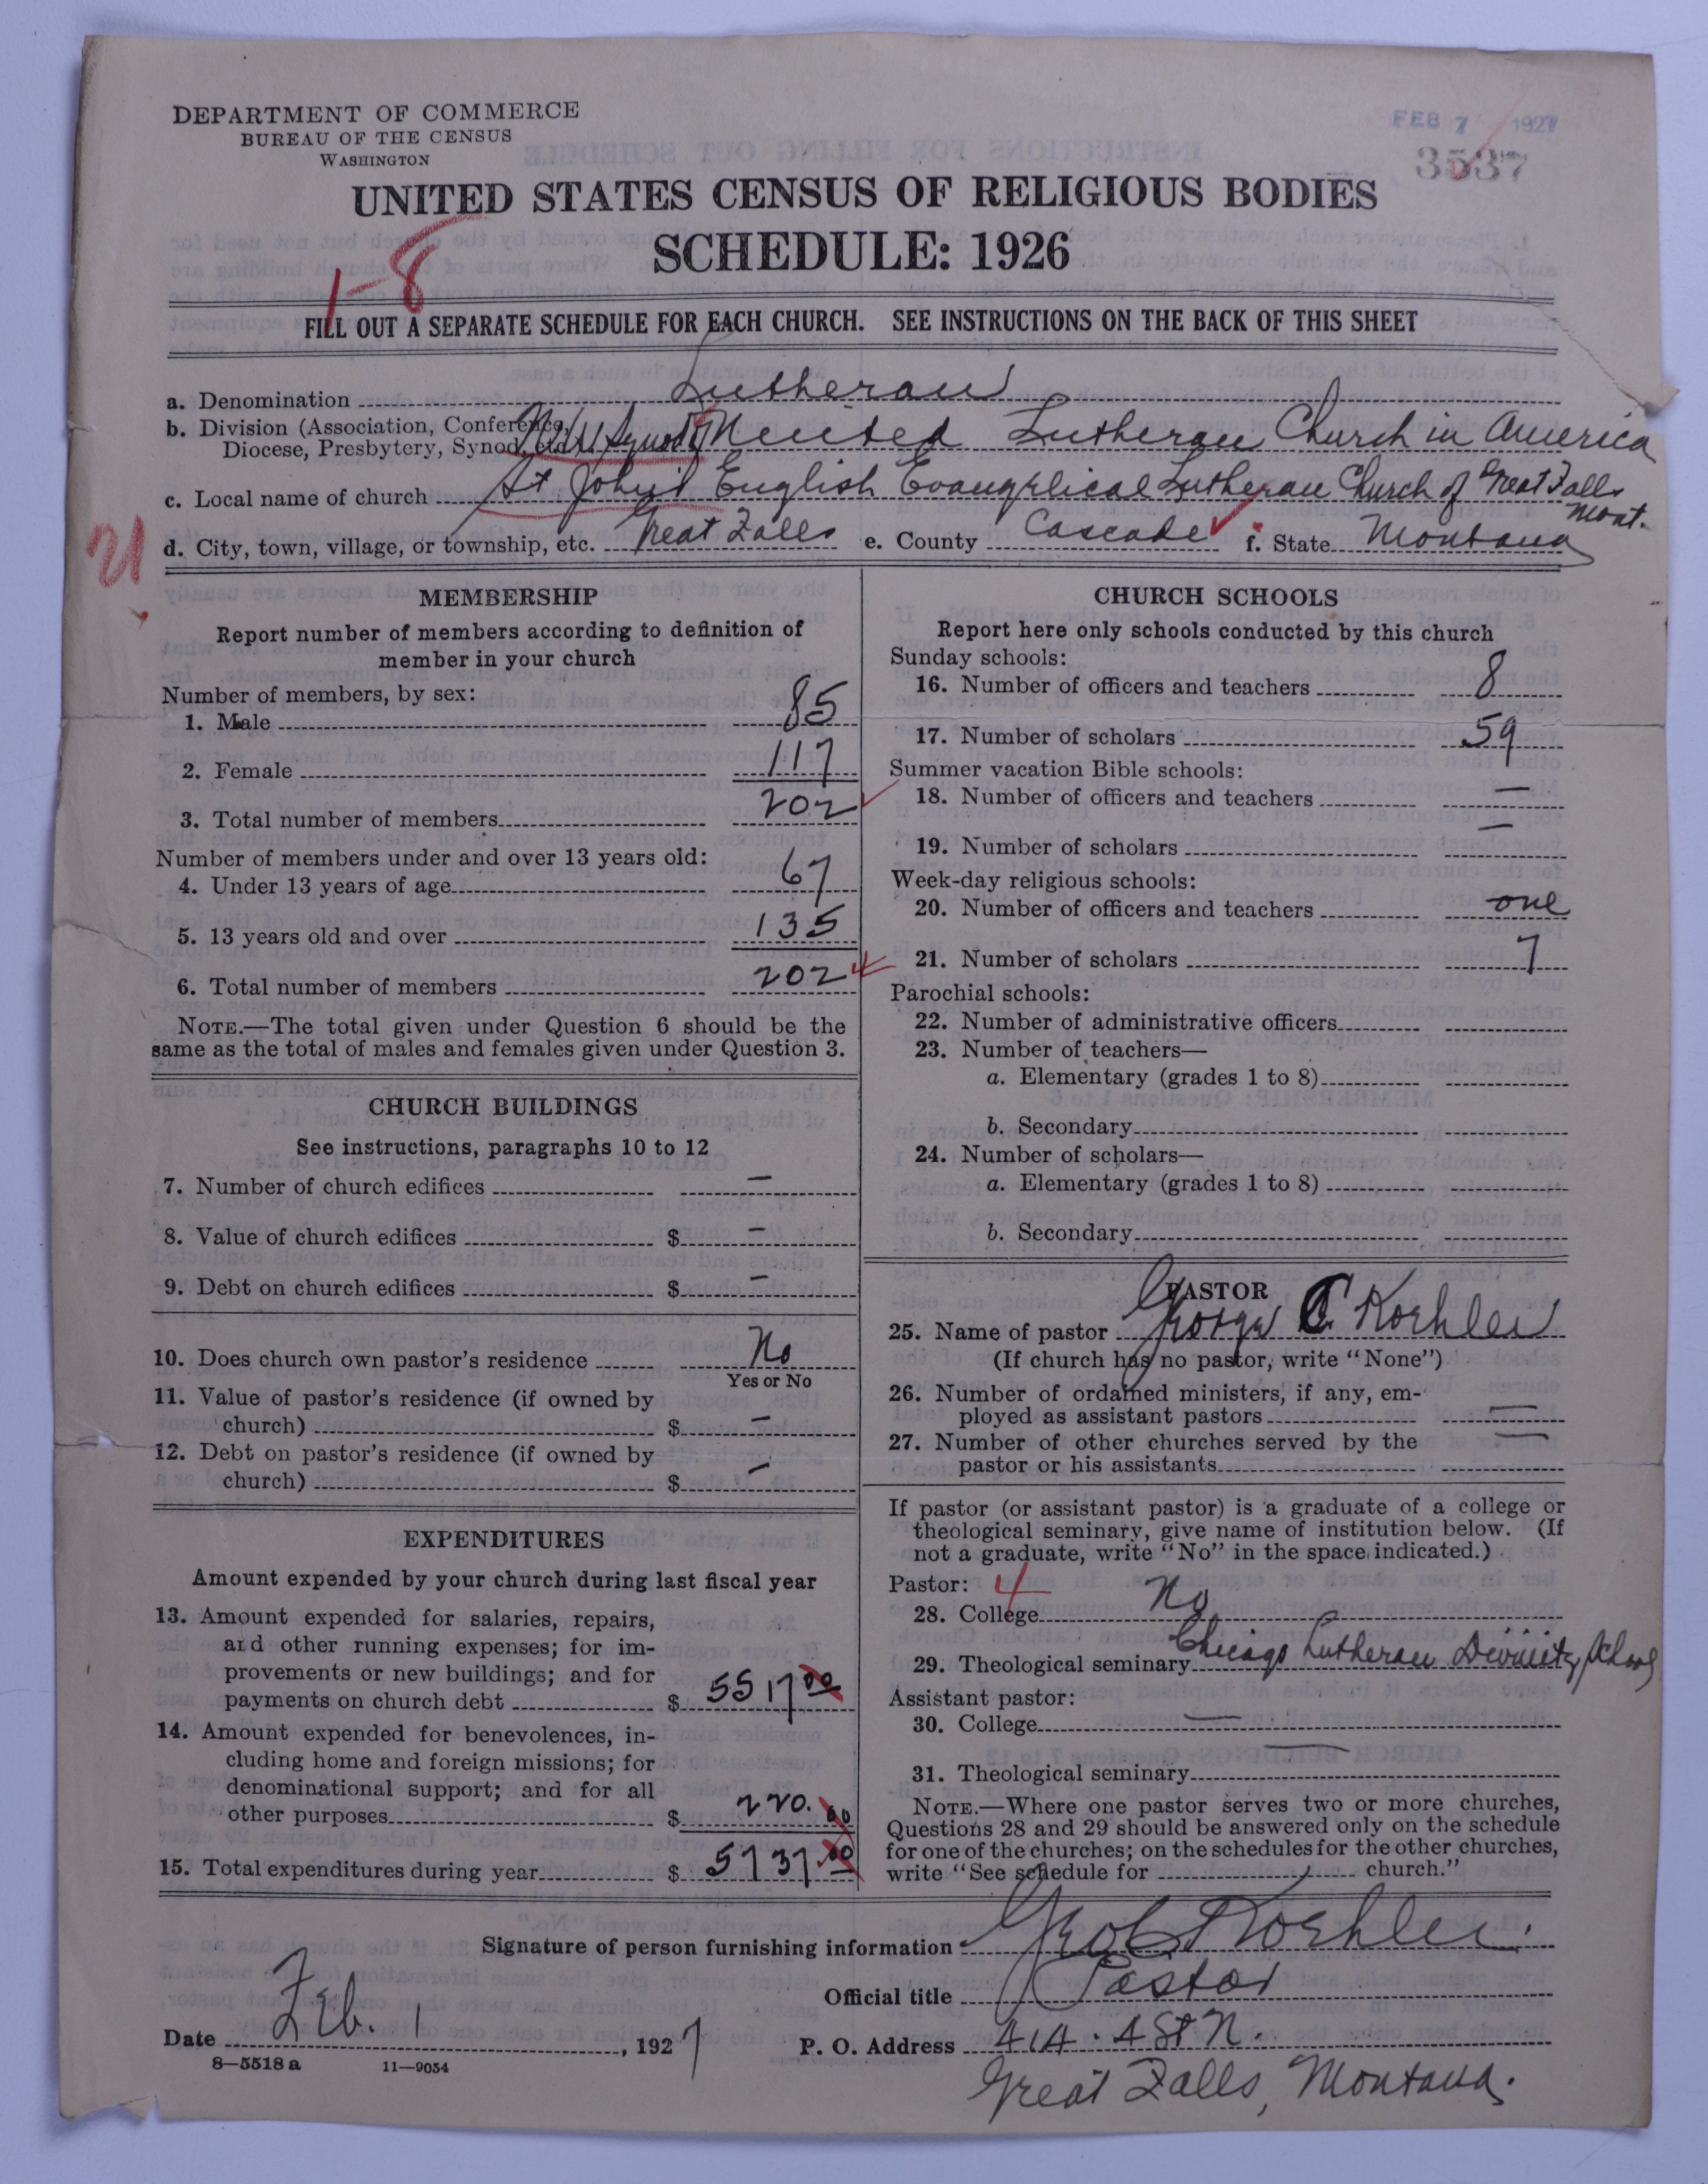 DEPARTMENT OF COMMERCE
BUREAU OF THE CENSUS
WASHINGTON
FEB 7 1927
3537
UNITED STATES CENSUS OF RELIGIOUS BODIES
SCHEDULE: 1926
1-8
FILL OUT A SEPARATE SCHEDULE FOR EACH CHURCH. SEE INSTRUCTIONS ON THE BACK OF THIS SHEET
a. Denomination Lutheran
b. Division (Association, Conference,
Diocese, Presbytery, Synod, etc.) Synod United Lutheran Church in America
c. Local name of church St John's English Evangelical Lutheran Church of Great Falls
Mont.
d. City, town, village, or township, etc. Great Falls e. County Cascade f. State Montana
MEMBERSHIP
Report number of members according to definition of
member in your church
Number of members, by sex:
1. Male 85
2. Female 117
3. Total number of members 202
Number of members under and over 13 years old:
4. Under 13 years of age 67
5. 13 years old and over 135
6. Total number of members 202
NOTE.—The total given under Question 6 should be the
same as the total of males and females given under Question 3.
CHURCH BUILDINGS
See instructions, paragraphs 10 to 12
7. Number of church edifices —
8. Value of church edifices $ —
9. Debt on church edifices $ —
10. Does church own pastor's residence No
Yes or No
11. Value of pastor's residence (if owned by
church) $ —
12. Debt on pastor's residence (if owned by
church) $ —
EXPENDITURES
Amount expended by your church during last fiscal year
13. Amount expended for salaries, repairs,
and other running expenses; for im-
provements or new buildings; and for
payments on church debt $ 5517 00
14. Amount expended for benevolences, in-
cluding home and foreign missions; for
denominational support; and for all
other purposes $ 220. 00
15. Total expenditures during year $ 5737 00
CHURCH SCHOOLS
Report here only schools conducted by this church
Sunday schools:
16. Number of officers and teachers 8
17. Number of scholars 59
Summer vacation Bible schools:
18. Number of officers and teachers —
19. Number of scholars —
Week-day religious schools:
20. Number of officers and teachers one
21. Number of scholars 7
Parochial schools:
22. Number of administrative officers
23. Number of teachers—
a. Elementary (grades 1 to 8)
b. Secondary
24. Number of scholars—
a. Elementary (grades 1 to 8)
b. Secondary
PASTOR
25. Name of pastor George C. Koehler
(If church has no pastor, write "None")
26. Number of ordained ministers, if any, em-
ployed as assistant pastors —
27. Number of other churches served by the
pastor or his assistants —
If pastor (or assistant pastor) is a graduate of a college or
theological seminary, give name of institution below. (If
not a graduate, write "No" in the space indicated.)
Pastor: 4
28. College No
29. Theological seminary Chicago Lutheran Divinity School
Assistant pastor:
30. College —
31. Theological seminary —
NOTE.—Where one pastor serves two or more churches,
Questions 28 and 29 should be answered only on the schedule
for one of the churches; on the schedules for the other churches,
write "See schedule for church."
Signature of person furnishing information Geo C Koehler.
Official title Pastor
Date Feb. 1, 1927 P. O. Address 414. 4 St N.
8—5518 a 11—9054
Great Falls, Montana.